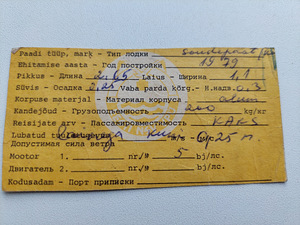 Paadi tüüp, mark - Тип лодки
Ehitamise aasta - Год постройки 1979
Pikkus - Длина 2,65 Laius - Ширина 1,1
Süvis - Осадка 0,25 Vaba parda kõrg. - Н.надв. 0,3
Korpuse materjal - Материал корпуса alum
Kandejõud - Грузоподъемность 200 kg/кг
Reisijate arv - Пассажировместимость KAKS
Lubatud
Допустимая сила ветра
Mootor 1. nr./№ 5 hj/лс.
Двигатель 2. nr./№ hj/лс.
Kodusadam - Порт приписки